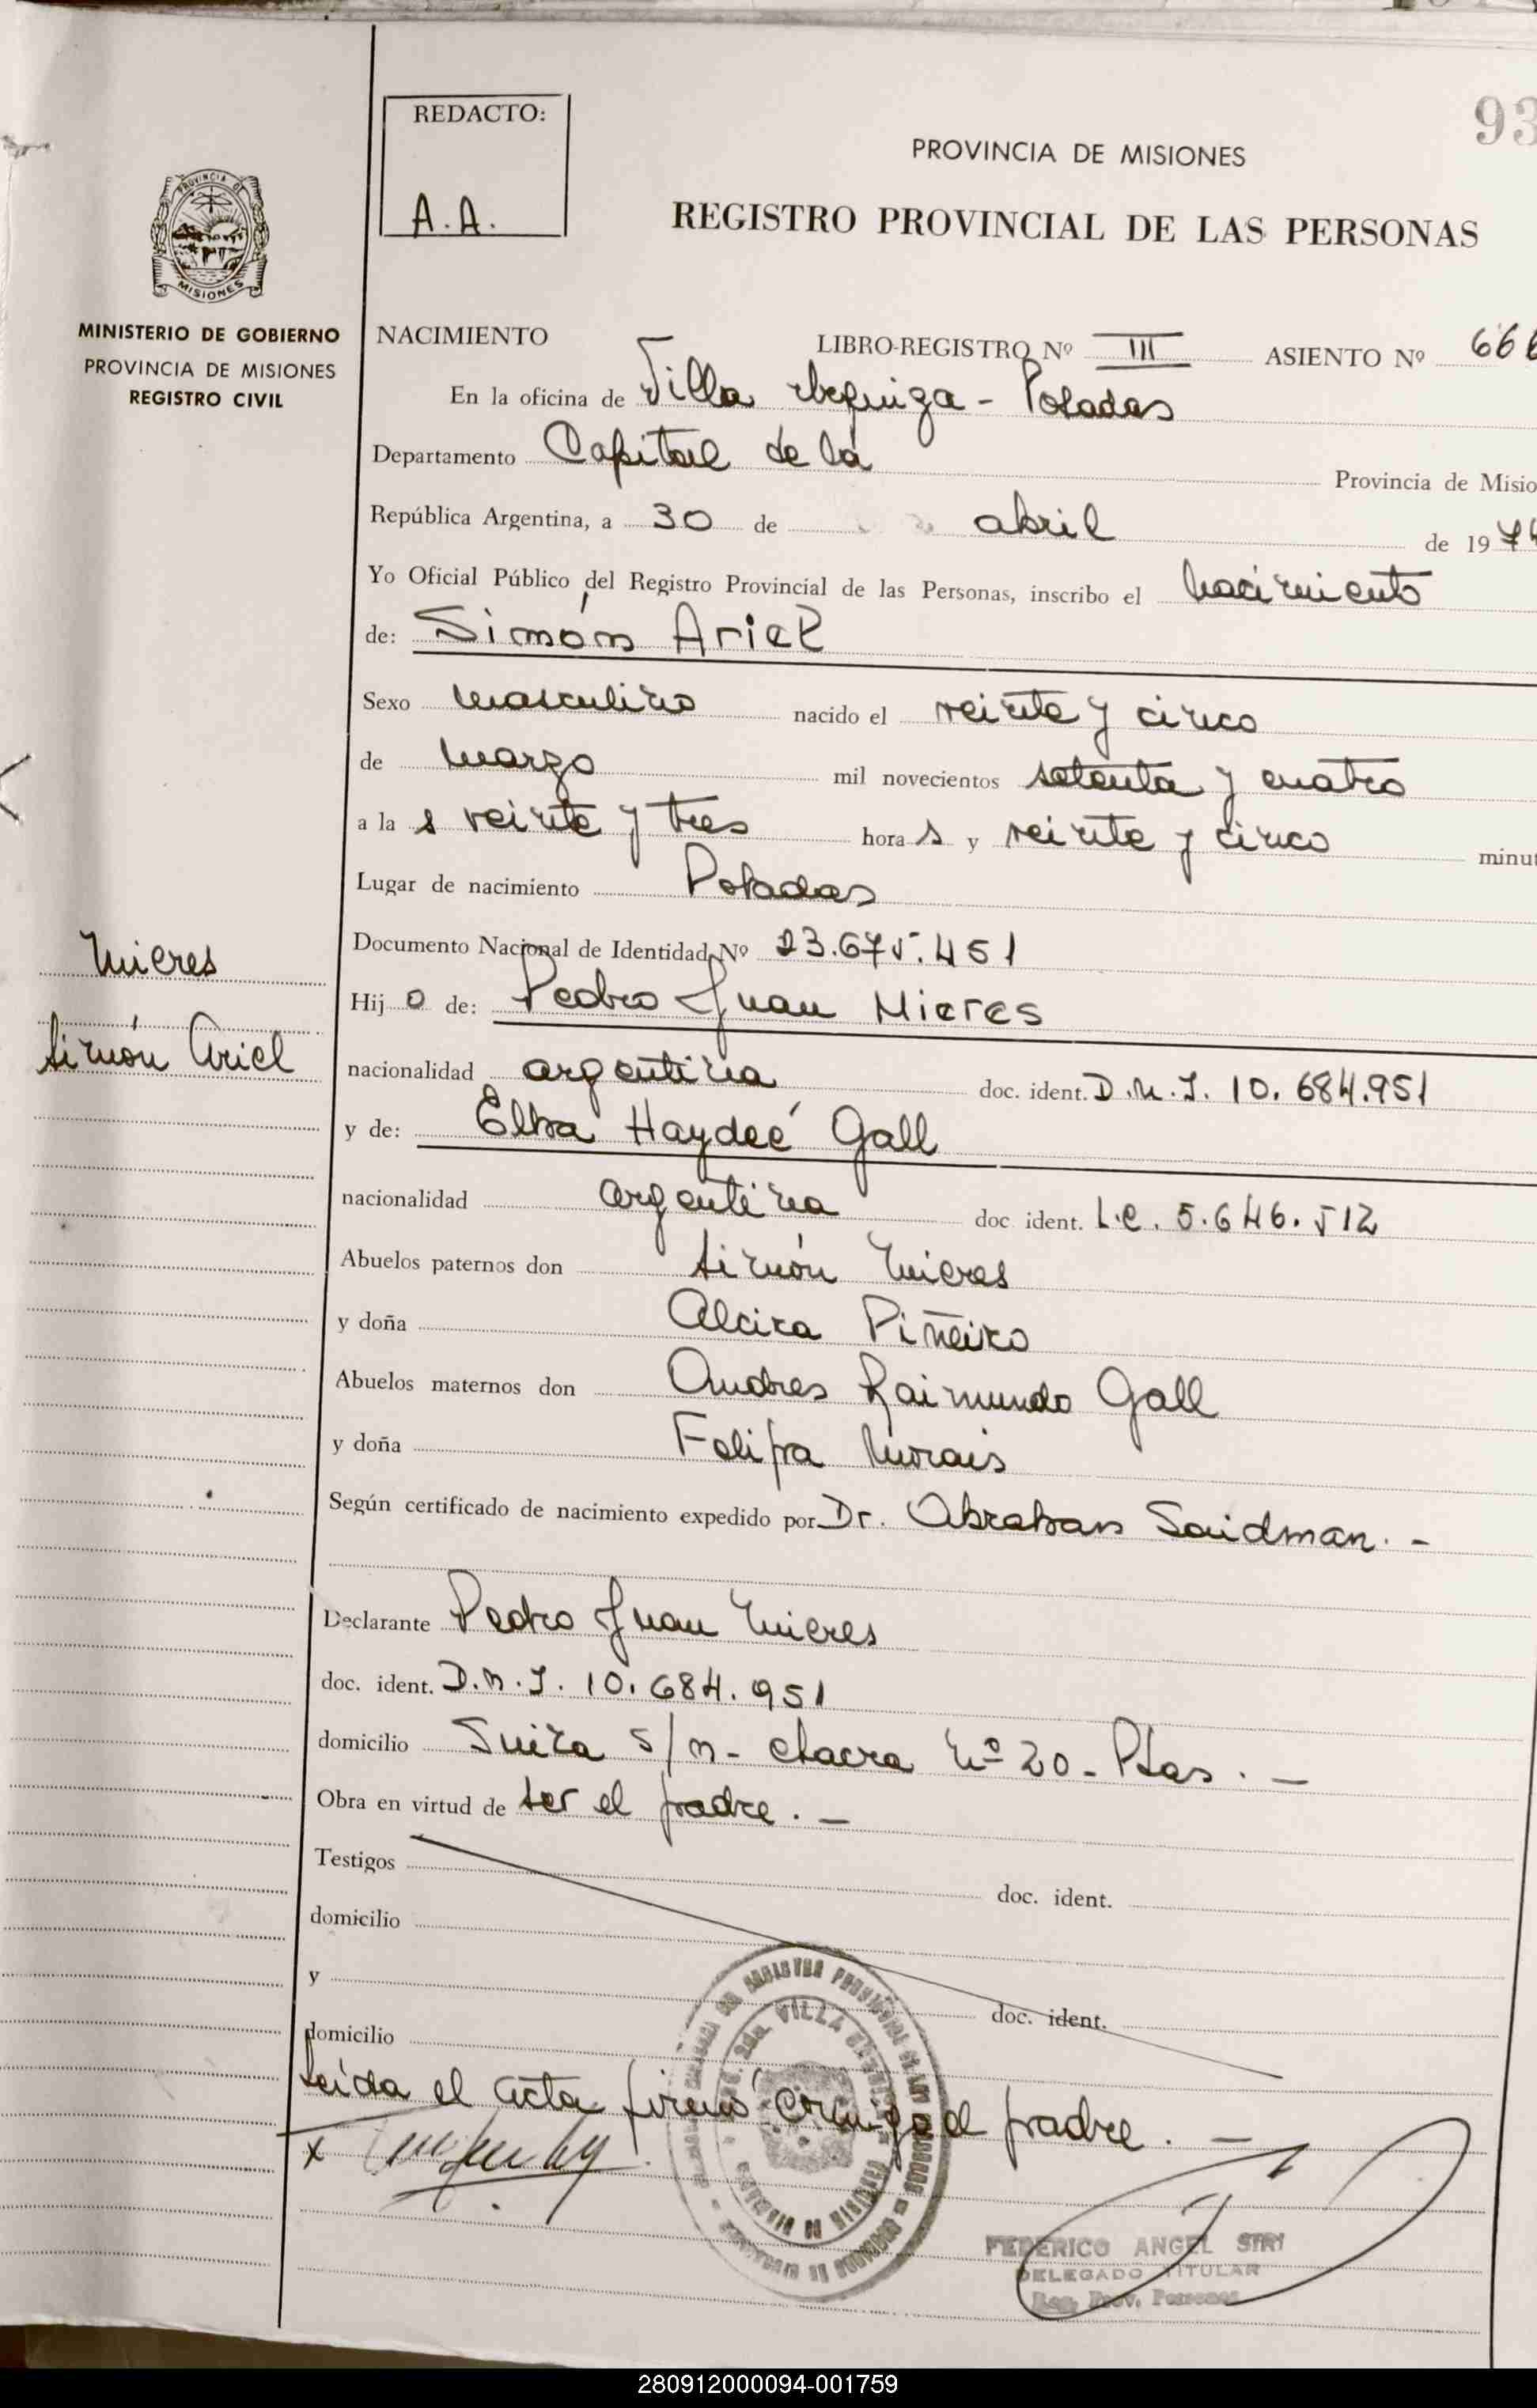 93
REDACTO:
A.A.
PROVINCIA DE MISIONES
REGISTRO PROVINCIAL DE LAS PERSONAS
PROVINCIA DE
MISIONES
MINISTERIO DE GOBIERNO
PROVINCIA DE MISIONES
REGISTRO CIVIL
NACIMIENTO LIBRO-REGISTRO Nº III ASIENTO Nº 666
En la oficina de Villa Urquiza - Posadas
Departamento Capital de la Provincia de Misio
República Argentina, a 30 de abril de 1974
Yo Oficial Público del Registro Provincial de las Personas, inscribo el nacimiento
de: Simón Ariel
Sexo masculino nacido el veinte y cinco
de marzo mil novecientos setenta y cuatro
a la s veinte y tres hora s y veinte y cinco minut
Lugar de nacimiento Posadas
Documento Nacional de Identidad Nº 23.675.451
Mieres
Simón Ariel
Hij o de: Pedro Juan Mieres
nacionalidad argentina doc. ident. D.N.I. 10.684.951
y de: Elba Haydeé Gall
nacionalidad argentina doc ident. L.C. 5.646.512
Abuelos paternos don Simón Mieres
y doña Alcira Piñeiro
Abuelos maternos don Andres Raimundo Gall
y doña Felipa Morais
Según certificado de nacimiento expedido por Dr. Abraham Saidman. -
Declarante Pedro Juan Mieres
doc. ident. D.N.I. 10.684.951
domicilio Suiza s/n - chacra Nº 20 - Pdas. -
Obra en virtud de ser el padre. -
Testigos doc. ident.
domicilio
y doc. ident.
domicilio
Leida el acta firmó conmigo el padre. -
x
FEDERICO ANGEL SIRI
DELEGADO TITULAR
Reg. Prov. Personas
280912000094-001759